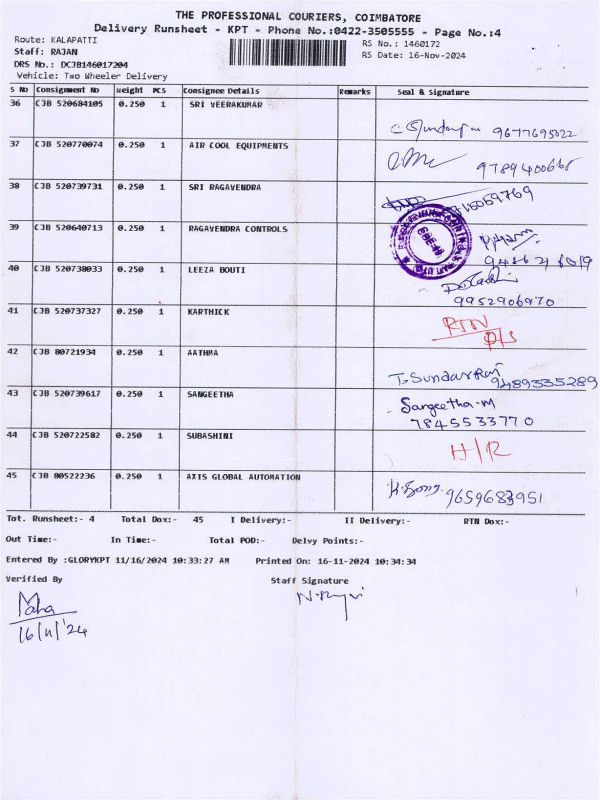 THE PROFESSIONAL COURIERS, COIMBATORE
Delivery Runsheet - KPT - Phone No.:0422-3505555 - Page No.:4
Route: KALAPATTI
RS No.: 1460172
Staff: RAJAN
RS Date: 16-Nov-2024
DRS No.: DCJB146017204
Vehicle: Two Wheeler Delivery
S No Consignment No Weight PCS Consignee Details Remarks Seal & Signature
36 CJB 520684105 0.250 1 SRI VEERAKUMAR
9677695022
37 CJB 520770074 0.250 1 AIR COOL EQUIPMENTS
9789400665
38 CJB 520739731 0.250 1 SRI RAGAVENDRA
39 CJB 520640713 0.250 1 RAGAVENDRA CONTROLS
40 CJB 520738033 0.250 1 LEEZA BOUTI
9952906970
41 CJB 520737327 0.250 1 KARTHICK
RTN
D/S
42 CJB 80721934 0.250 1 AATHMA
T. Sundar Raj
9489335289
43 CJB 520739617 0.250 1 SANGEETHA
Sangeetha-M
7845533770
44 CJB 520722582 0.250 1 SUBASHINI
H/R
45 CJB 80522236 0.250 1 AXIS GLOBAL AUTOMATION
9659683951
Tot. Runsheet:- 4 Total Dox:- 45 I Delivery:- II Delivery:- RTN Dox:-
Out Time:- In Time:- Total POD:- Delvy Points:-
Entered By :GLORYKPT 11/16/2024 10:33:27 AM Printed On: 16-11-2024 10:34:34
Verified By Staff Signature
Maha
16/11/24